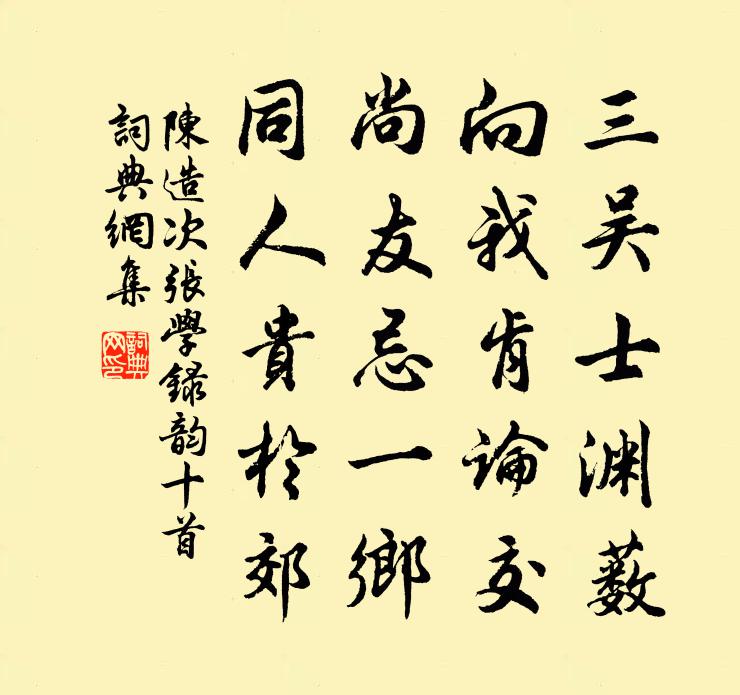 三吴士渊薮
向我肯論交
尚友忌一鄉
同人貴於郊
陳造次張學録韵十首
詞典網集
詞典網印